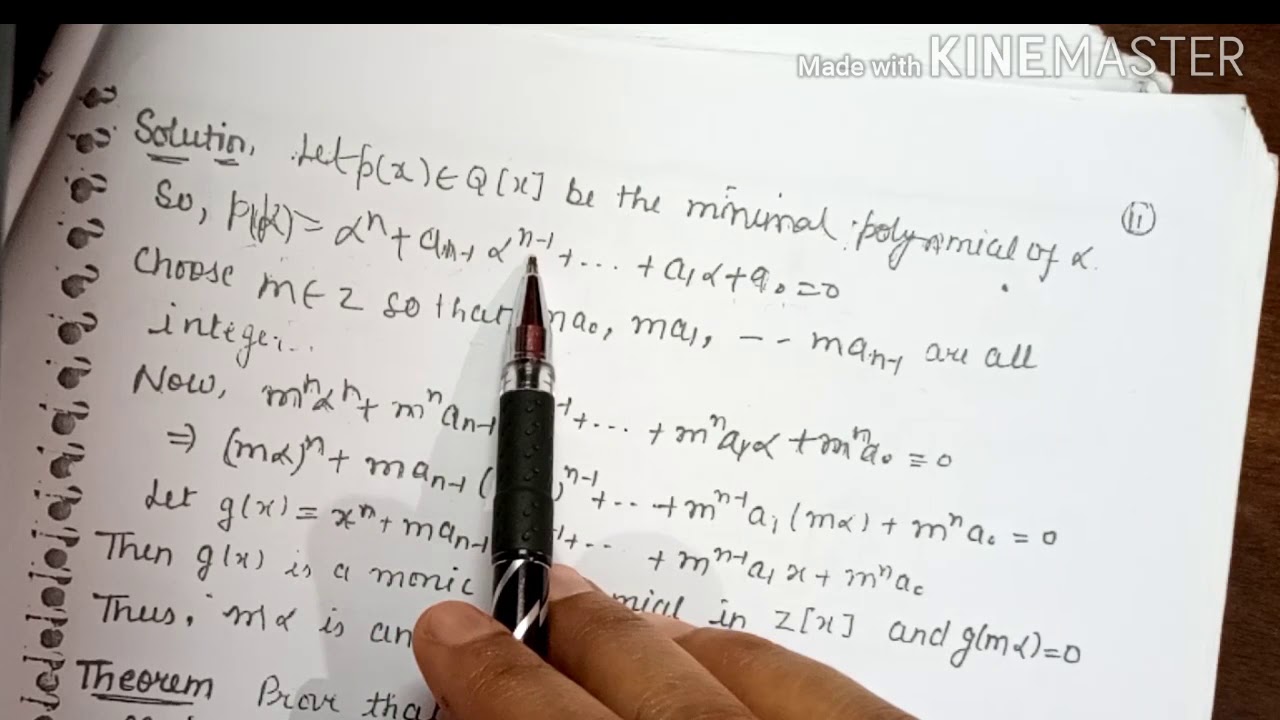 Made with KINEMASTER
Solutin. Let p(x) ∈ Q[x] be the minimal polynomial of α.
(11)
So, p(α) = αⁿ + aₙ₋₁ αⁿ⁻¹ + ... + a₁α + a₀ = 0
Choose m ∈ Z so that ma₀, ma₁, -- maₙ₋₁ are all
integer..
Now, mⁿαⁿ + mⁿaₙ₋₁ ⁻¹ + ... + mⁿa₁α + mⁿa₀ = 0
⇒ (mα)ⁿ + maₙ₋₁ ( )ⁿ⁻¹ + ... + mⁿ⁻¹a₁(mα) + mⁿa₀ = 0
Let g(x) = xⁿ + maₙ₋₁ ⁻¹ + ... + mⁿ⁻¹a₁x + mⁿa₀
Then g(x) is a monic mial in Z[x] and g(mα) = 0
Thus, mα is an
Theorem Prove that